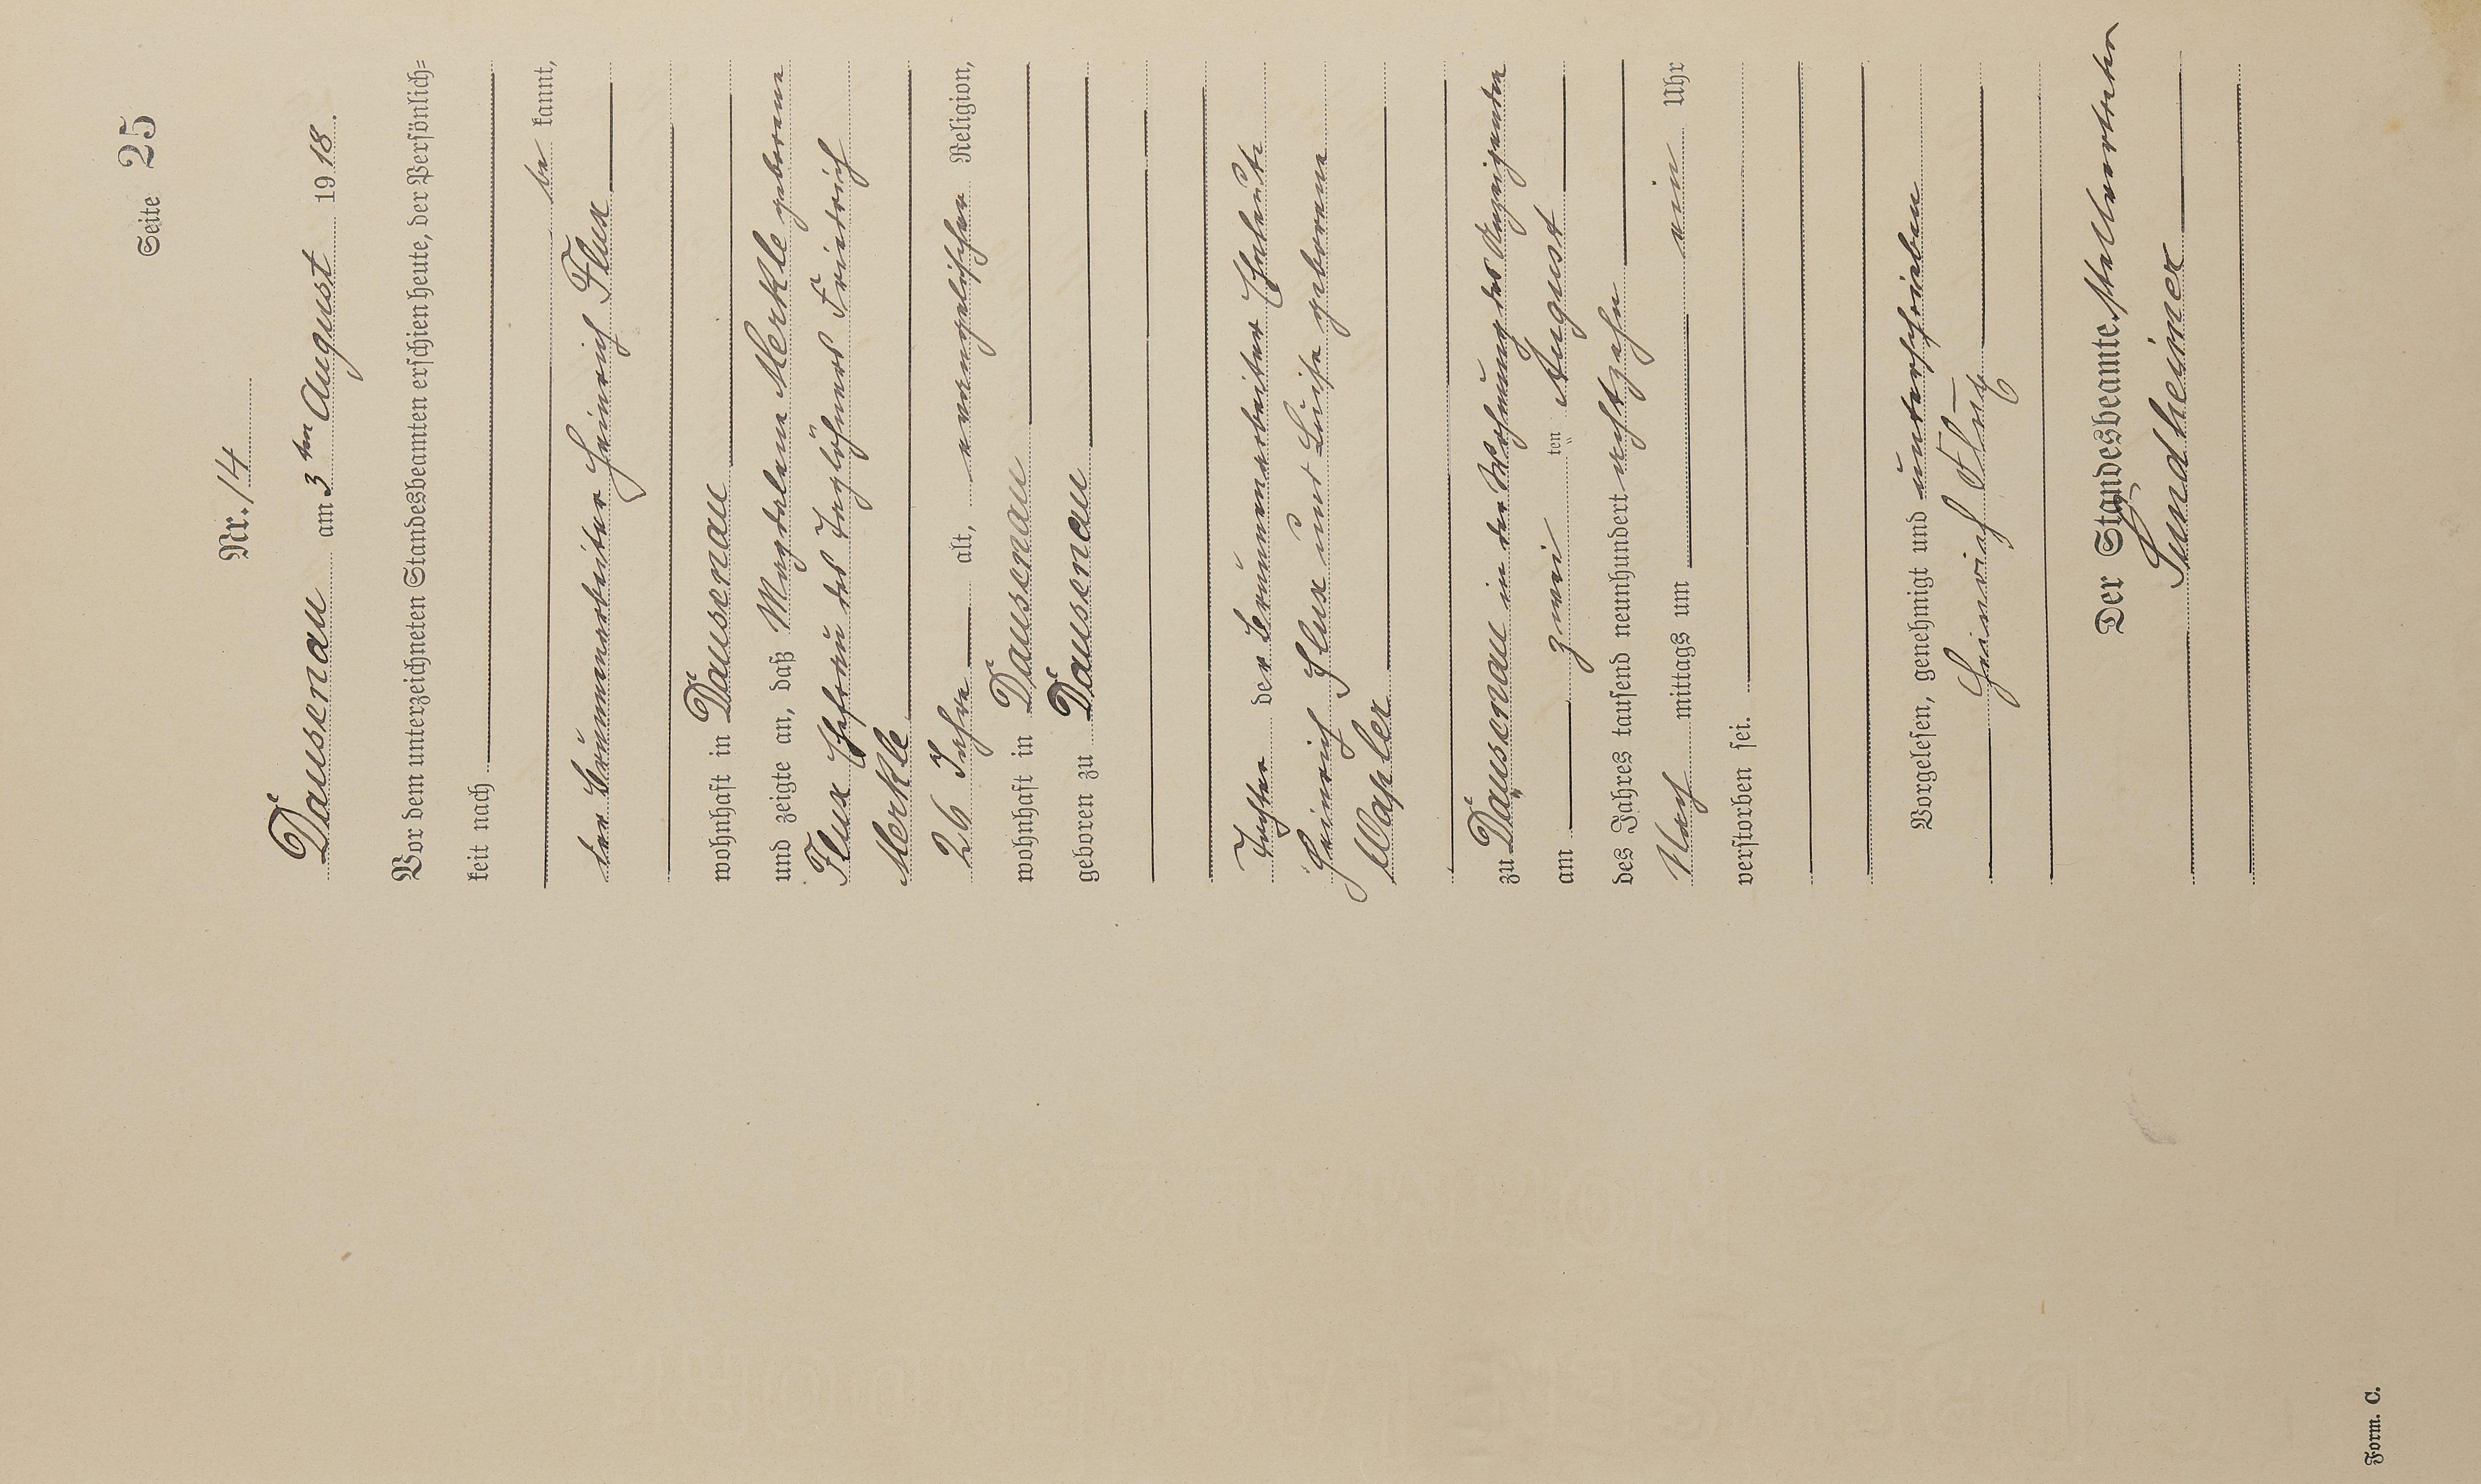 Seite 25
Nr. 14
Dausenau am 3ten August 1918.
Vor dem unterzeichneten Standesbeamten erschien heute, der Persönlich-
keit nach
be kannt,
der Brunnenarbeiter Heinrich Flux
wohnhaft in Dausenau
und zeigte an, daß Magdalena Merkle geborene
Flux Ehefrau des Taglöhners Friedrich
Merkle
26 Jahre alt, evangelischer Religion,
wohnhaft in Dausenau
geboren zu Dausenau
Tochter der Brunnenarbeiter Eheleute
Heinrich Flux und Luise geborene
zu Dausenau in der Wohnung des Anzeigenden
am zwei ten August
des Jahres tausend neunhundert achtzehn
Nach mittags um ein Uhr
verstorben sei.
Vorgelesen, genehmigt und unterschrieben
Heinrich Flux
Der Standesbeamte. Stellvertreter
Sundheimer
Form. C.